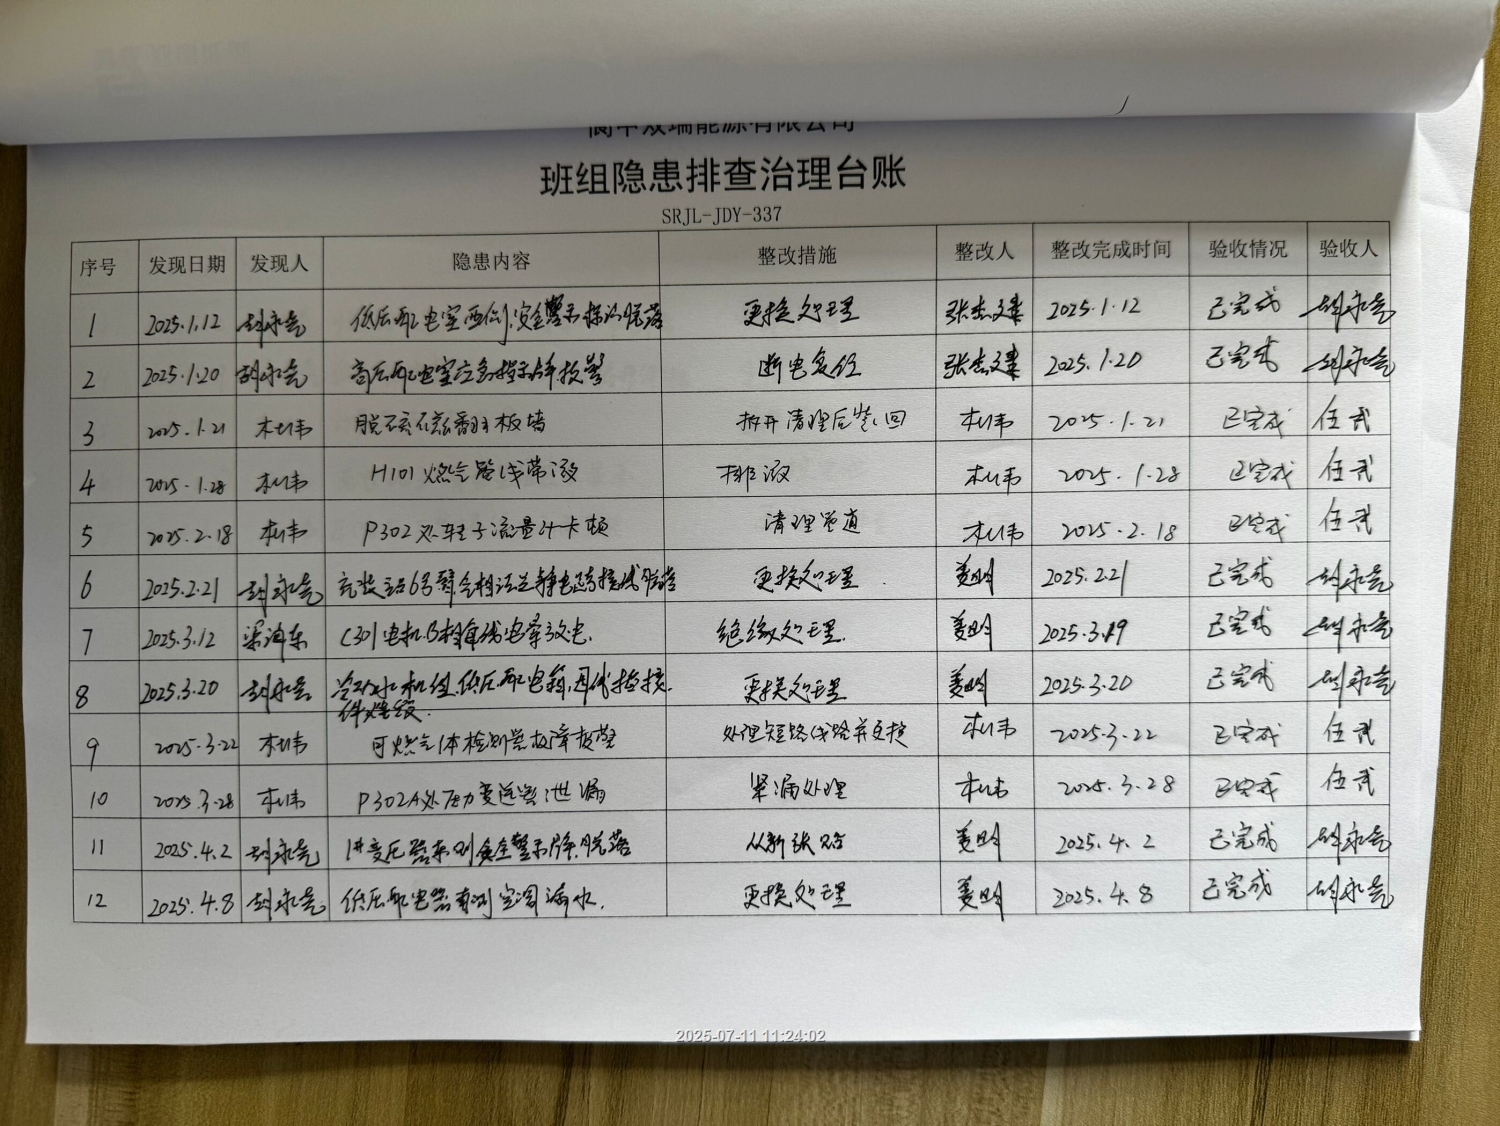 阆中双瑞能源有限公司
班组隐患排查治理台账
SRJL-JDY-337
序号 发现日期 发现人 隐患内容 整改措施 整改人 整改完成时间 验收情况 验收人
1 2025.1.12 胡永亮 低压配电室西侧安全警示标识脱落 更换处理 张杰建 2025.1.12 已完成 胡永亮
2 2025.1.20 胡永亮 高压配电室应急指示牌报警 断电复位 张杰建 2025.1.20 已完成 胡永亮
3 2025.1.21 杜伟 磁翻板堵 拆开清理后装回 杜伟 2025.1.21 已完成 任武
4 2025.1.28 杜伟 H101燃气管线带液 排液 杜伟 2025.1.28 已完成 任武
5 2025.2.18 杜伟 P302处转子流量计卡顿 清理管道 杜伟 2025.2.18 已完成 任武
6 2025.2.21 胡永亮 充装站6号臂静电跨接线脱落 更换处理 姜明 2025.2.21 已完成 胡永亮
7 2025.3.12 梁海东 C301电机B相电缆放电. 绝缘处理. 姜明 2025.3.19 已完成 胡永亮
8 2025.3.20 胡永亮 冷水机组低压配电箱, 更换处理 姜明 2025.3.20 已完成 胡永亮
件烧毁.
9 2025.3.22 杜伟 可燃气体检测器故障报警 处理短路线路并更换 杜伟 2025.3.22 已完成 任武
10 2025.3.28 杜伟 P302A处压力变送器泄漏 紧漏处理 杜伟 2025.3.28 已完成 任武
11 2025.4.2 胡永亮 1#变压器东侧安全警示牌脱落 从新张贴 姜明 2025.4.2 已完成 胡永亮
12 2025.4.8 胡永亮 低压配电器南侧空调漏水. 更换处理 姜明 2025.4.8 已完成 胡永亮
2025-07-11 11:24:02